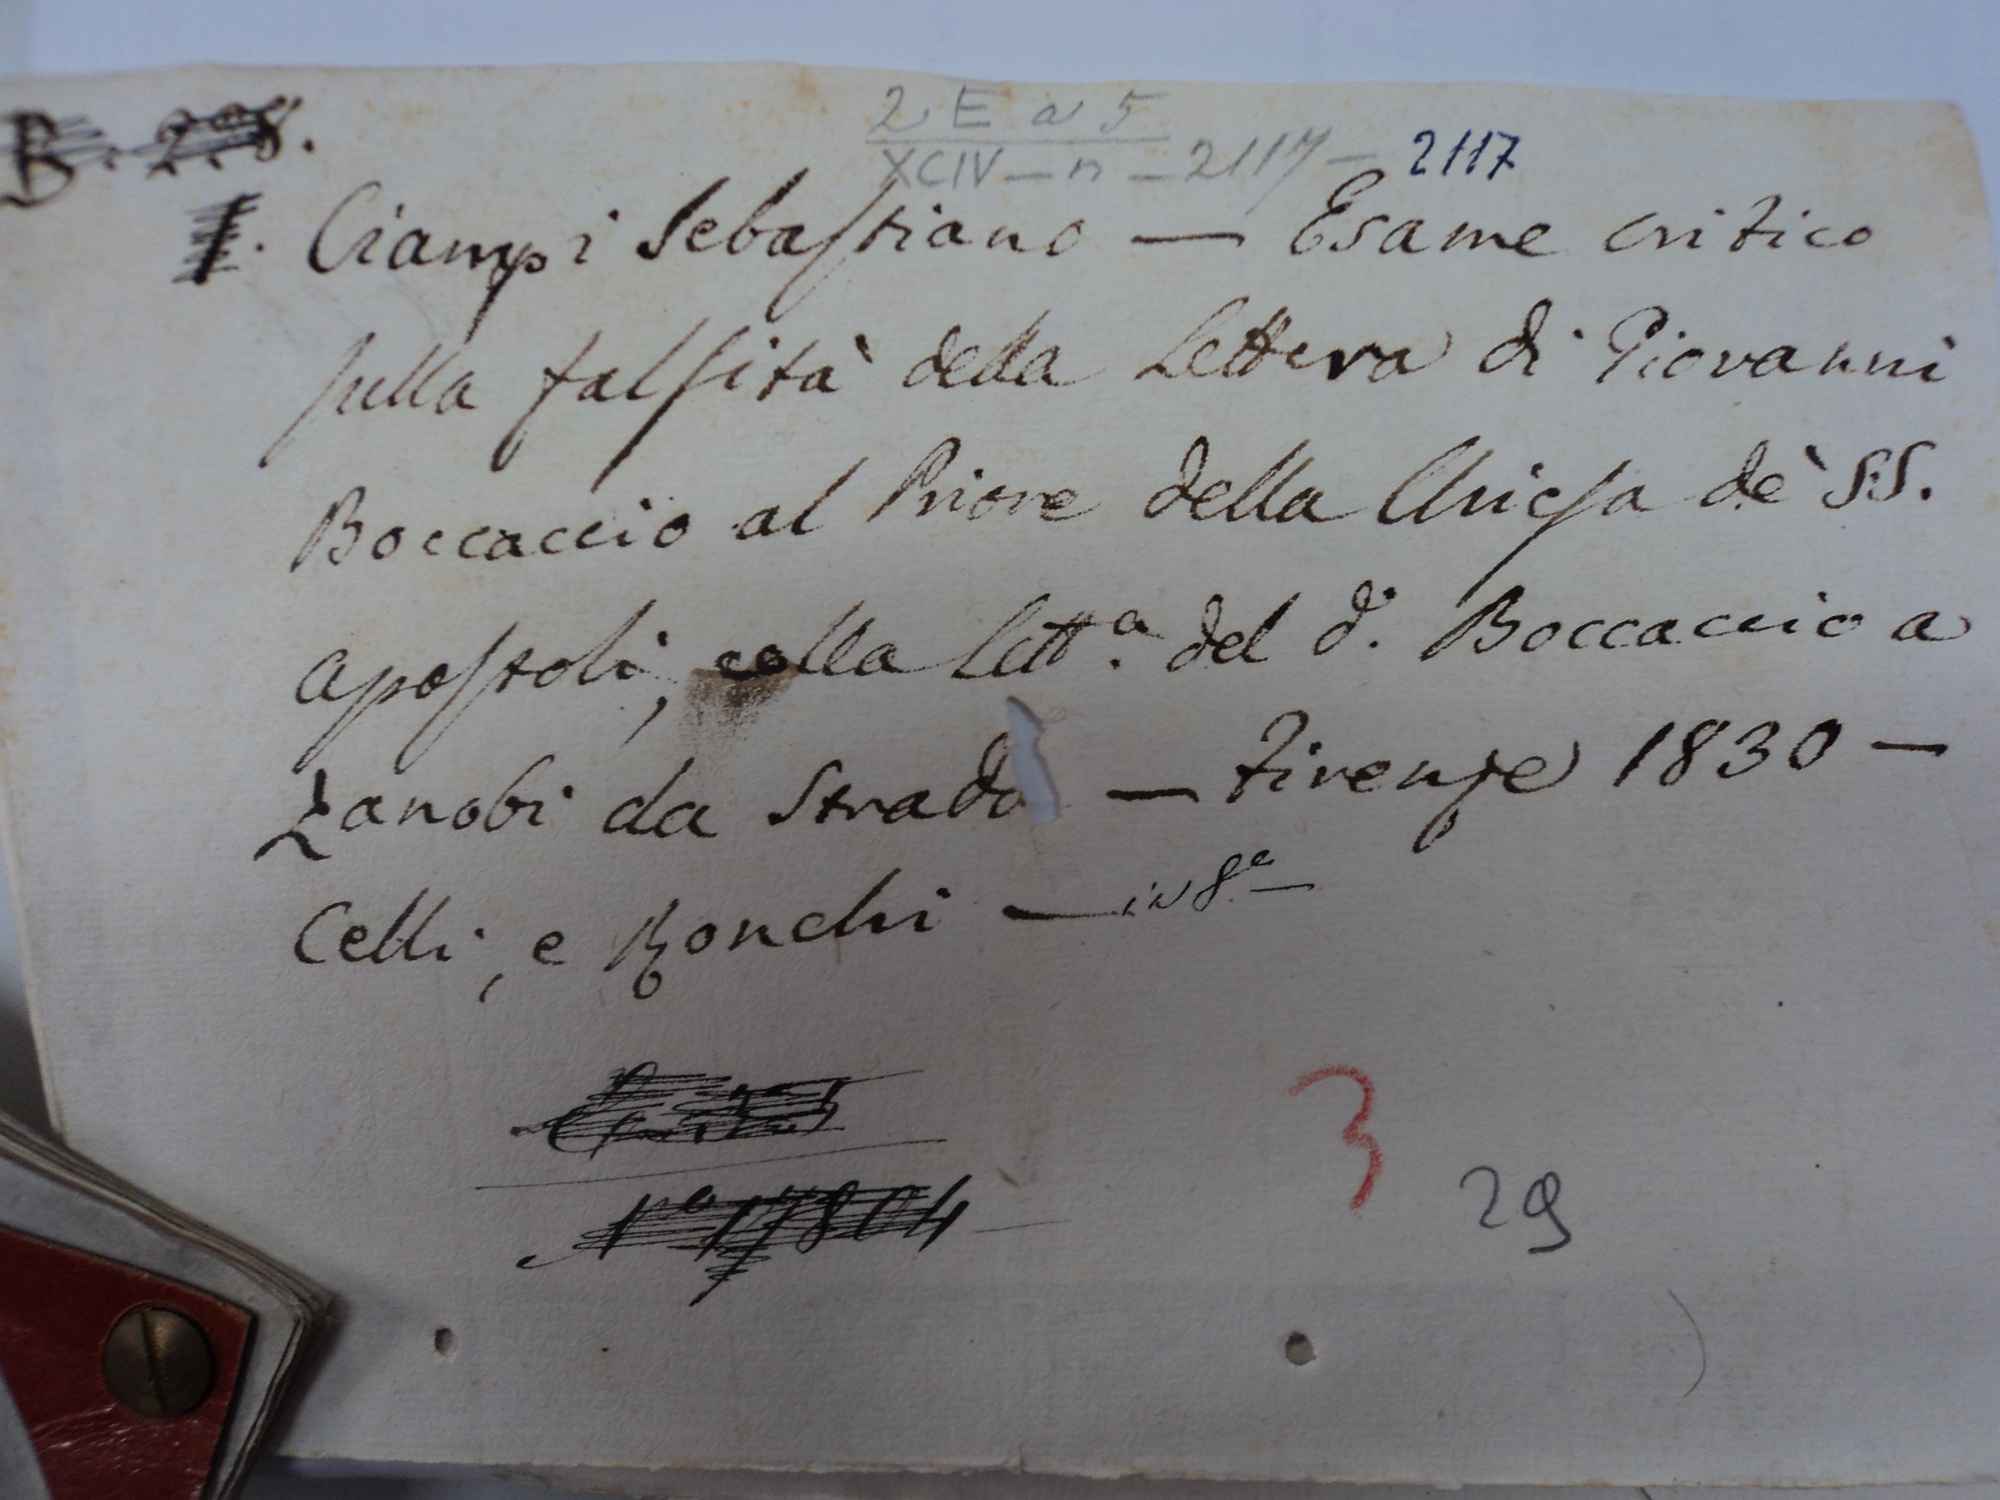 B. 228.
2 E a 5
XCIV – n – 2117 – 2117
I. Ciampi Sebastiano — Esame critico
sulla falsità della Lettera di Giovanni
Boccaccio al Priore della Chiesa de' SS.
Apostoli, colla Lett.a del d.o Boccaccio a
Zanobi da Strada — Firenze 1830 —
Celli, e Ronchi — in 8.o —
N.o 17804
3
29